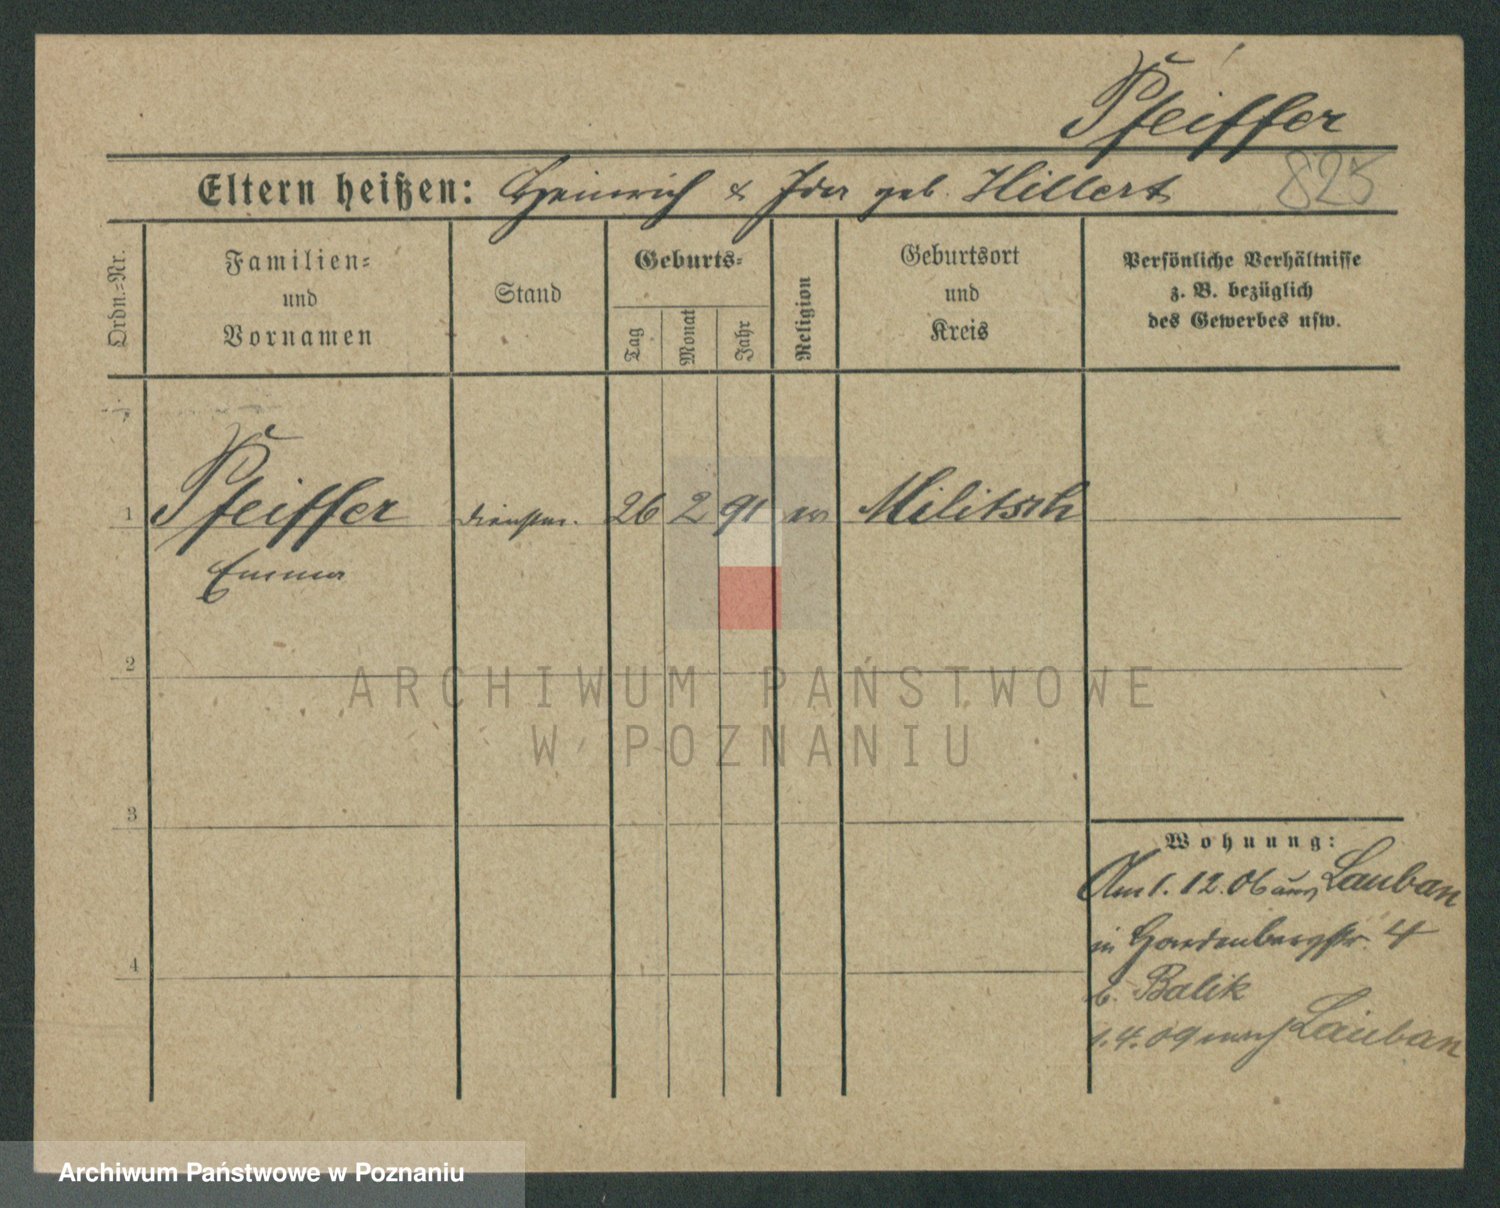 Pfeiffer
825
Eltern heißen: Heinrich & Ida geb. Hillert
Ordn.-Nr.
Familien- und Vornamen
Stand
Geburts-
Tag
Monat
Jahr
Religion
Geburtsort und Kreis
Persönliche Verhältnisse
z. B. bezüglich
des Gewerbes usw.
1 Pfeiffer dienstm. 26 2 91 ev Militsch
Emma
2
3
4
Wohnung:
Am 1. 12. 06 aus Lauban
in Hardenbergstr. 4
b. Balik
1. 4. 09 nach Lauban
ARCHIWUM PAŃSTWOWE
W POZNANIU
Archiwum Państwowe w Poznaniu